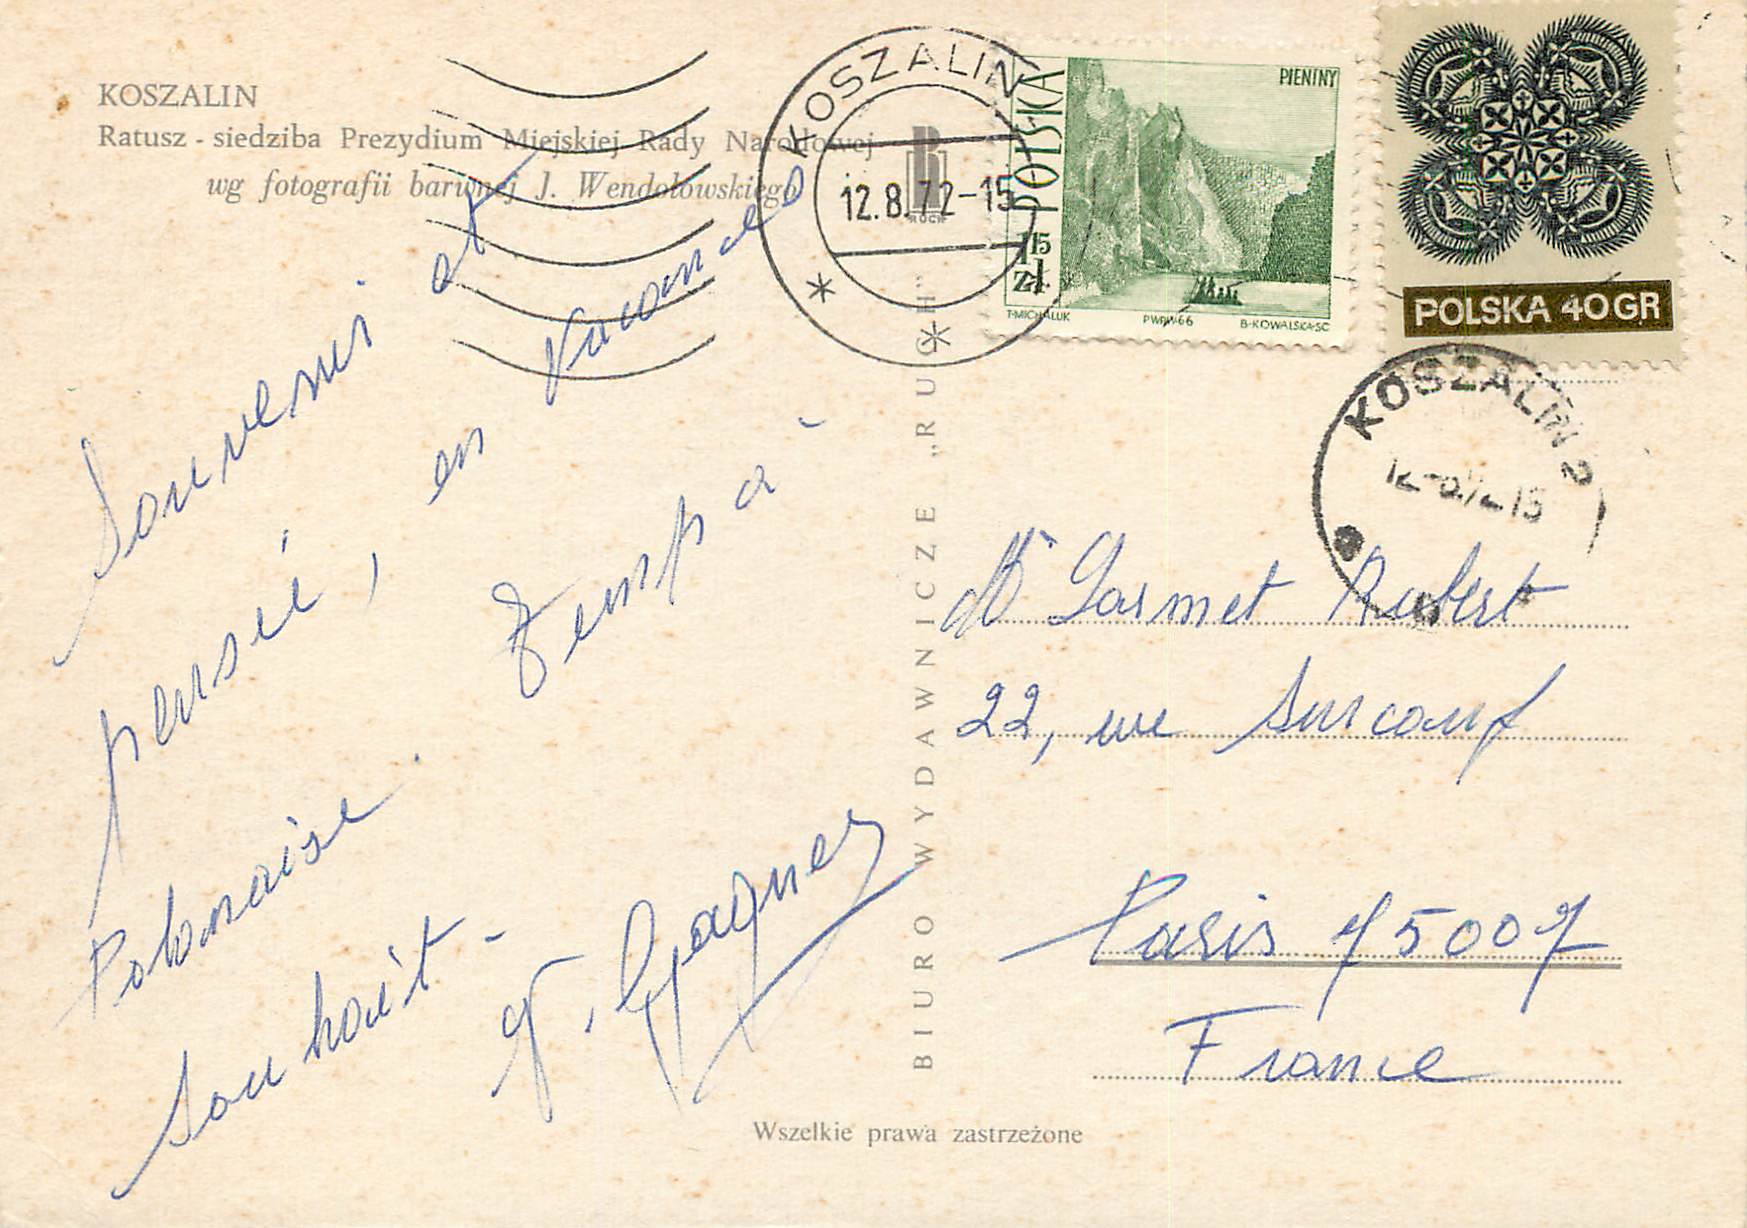 KOSZALIN
Ratusz - siedziba Prezydium Miejskiej Rady Narodowej
wg fotografii barwnej J. Wendołowskiego
KOSZALIN
12.8.72-15
R
RUCH
POLSKA
PIENINY
1 15 ZŁ
T·MICHALUK PWPW66 B·KOWALSKA·SC
POLSKA 40GR
KOSZALIN 2
Souvenir et
pensée, en vacances
Polonaise. Temps à
souhait -
G. Gagney
BIURO WYDAWNICZE „RUCH”
Mr Garmet Robert
22, rue Surcouf
Paris 75007
France
Wszelkie prawa zastrzeżone